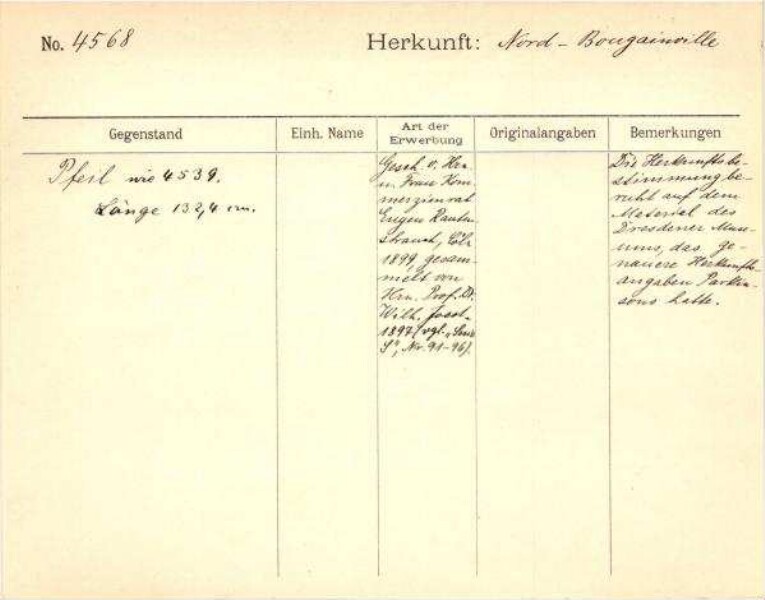 No. 4568 Herkunft: Nord - Bougainville
Gegenstand
Einh. Name
Art der
Erwerbung
Originalangaben
Bemerkungen
Pfeil wie 4539.
Länge 132,4 cm.
Gesch. v. Hrn.
u. Frau Kom-
merzienrat
Eugen Rauten-
strauch, Cöln
1899, gesam-
melt von
Hrn. Prof. Dr.
Wilh. Joest.
1897 (vgl. „Serie
S", Nr. 91-96).
Die Herkunftsbe-
stimmung be-
ruht auf dem
Material des
Dresdener Muse-
ums, das ge-
nauere Herkunfts-
angaben Parkin-
sons hatte.